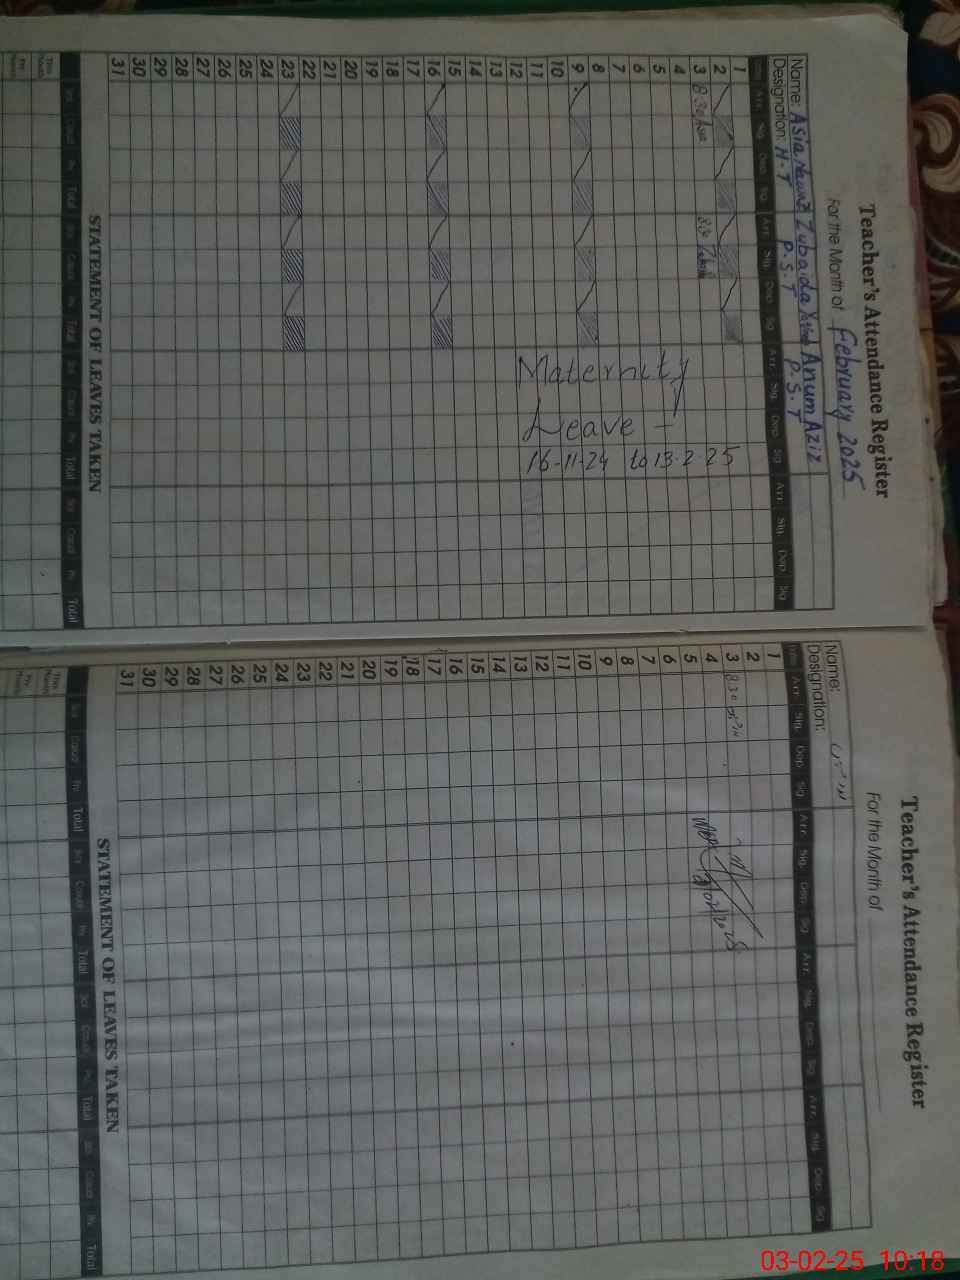 Teacher's Attendance Register
For the Month of February 2025
Name: Asia Zubaida Anum Aziz
Designation: H.T P.S.T P.S.T
Date Arr. Sig. Dep. Sig. Arr. Sig. Dep. Sig. Arr. Sig. Dep. Sig. Arr. Sig. Dep. Sig.
1
2
3 8:30 Asia 8:30
4
5
6
7
8
9
10
11
12
13
14
15
16
17
18
19
20
21
22
23
24
25
26
27
28
29
30
31
Maternity
Leave -
16-11-24 to 13-2-25
STATEMENT OF LEAVES TAKEN
Total Total Total Total
This Month
Teacher's Attendance Register
For the Month of
Name:
Designation:
Date Arr. Sig. Dep. Sig. Arr. Sig. Dep. Sig. Arr. Sig. Dep. Sig. Arr. Sig. Dep. Sig.
1
2
3 8:30
4
5
6
7
8
9
10
11
12
13
14
15
16
17
18
19
20
21
22
23
24
25
26
27
28
29
30
31
STATEMENT OF LEAVES TAKEN
Total Total Total Total
This Month
03-02-25 10:18